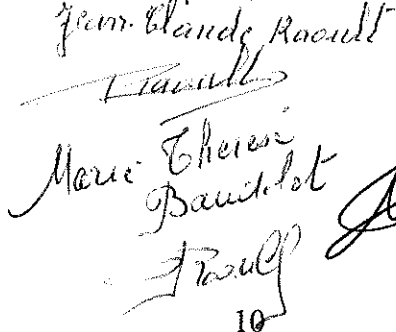 Jean-Claude Raoult
Raoult
Marie Therese
Baudelot
Raoult
10